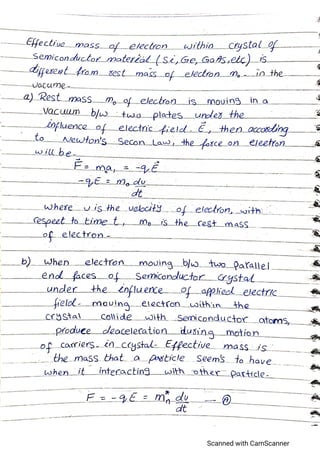 Effective mass of electron within crystal of
Semiconductor material (Si, Ge, GaAs, etc) is
different from rest mass of electron m₀. in the
vacume.
a) Rest mass m₀ of electron is mouing in a
vacuum b/w two plates under the
influence of electric field. E⃗, then according
to Newton's Secon Law, the force on eleetron
will be.
F⃗ = ma, = -qE⃗
-qE⃗ = m₀ du/dt
where u is the velocity of electron, with
respect to time t, m₀ is the rest mass
of electron-
b) When electron moving b/w two parallel
end faces of semiconductor crystal
under the influence of applied electric
field. mouing electron within the
crystal collide with semiconductor atoms,
produce deaceleration dusing motion
of carriers. in crystal. Effective mass is
the mass that a particle seem's to have
when it interacting with other particle.
F = -qE = mₙ* du/dt
Scanned with CamScanner